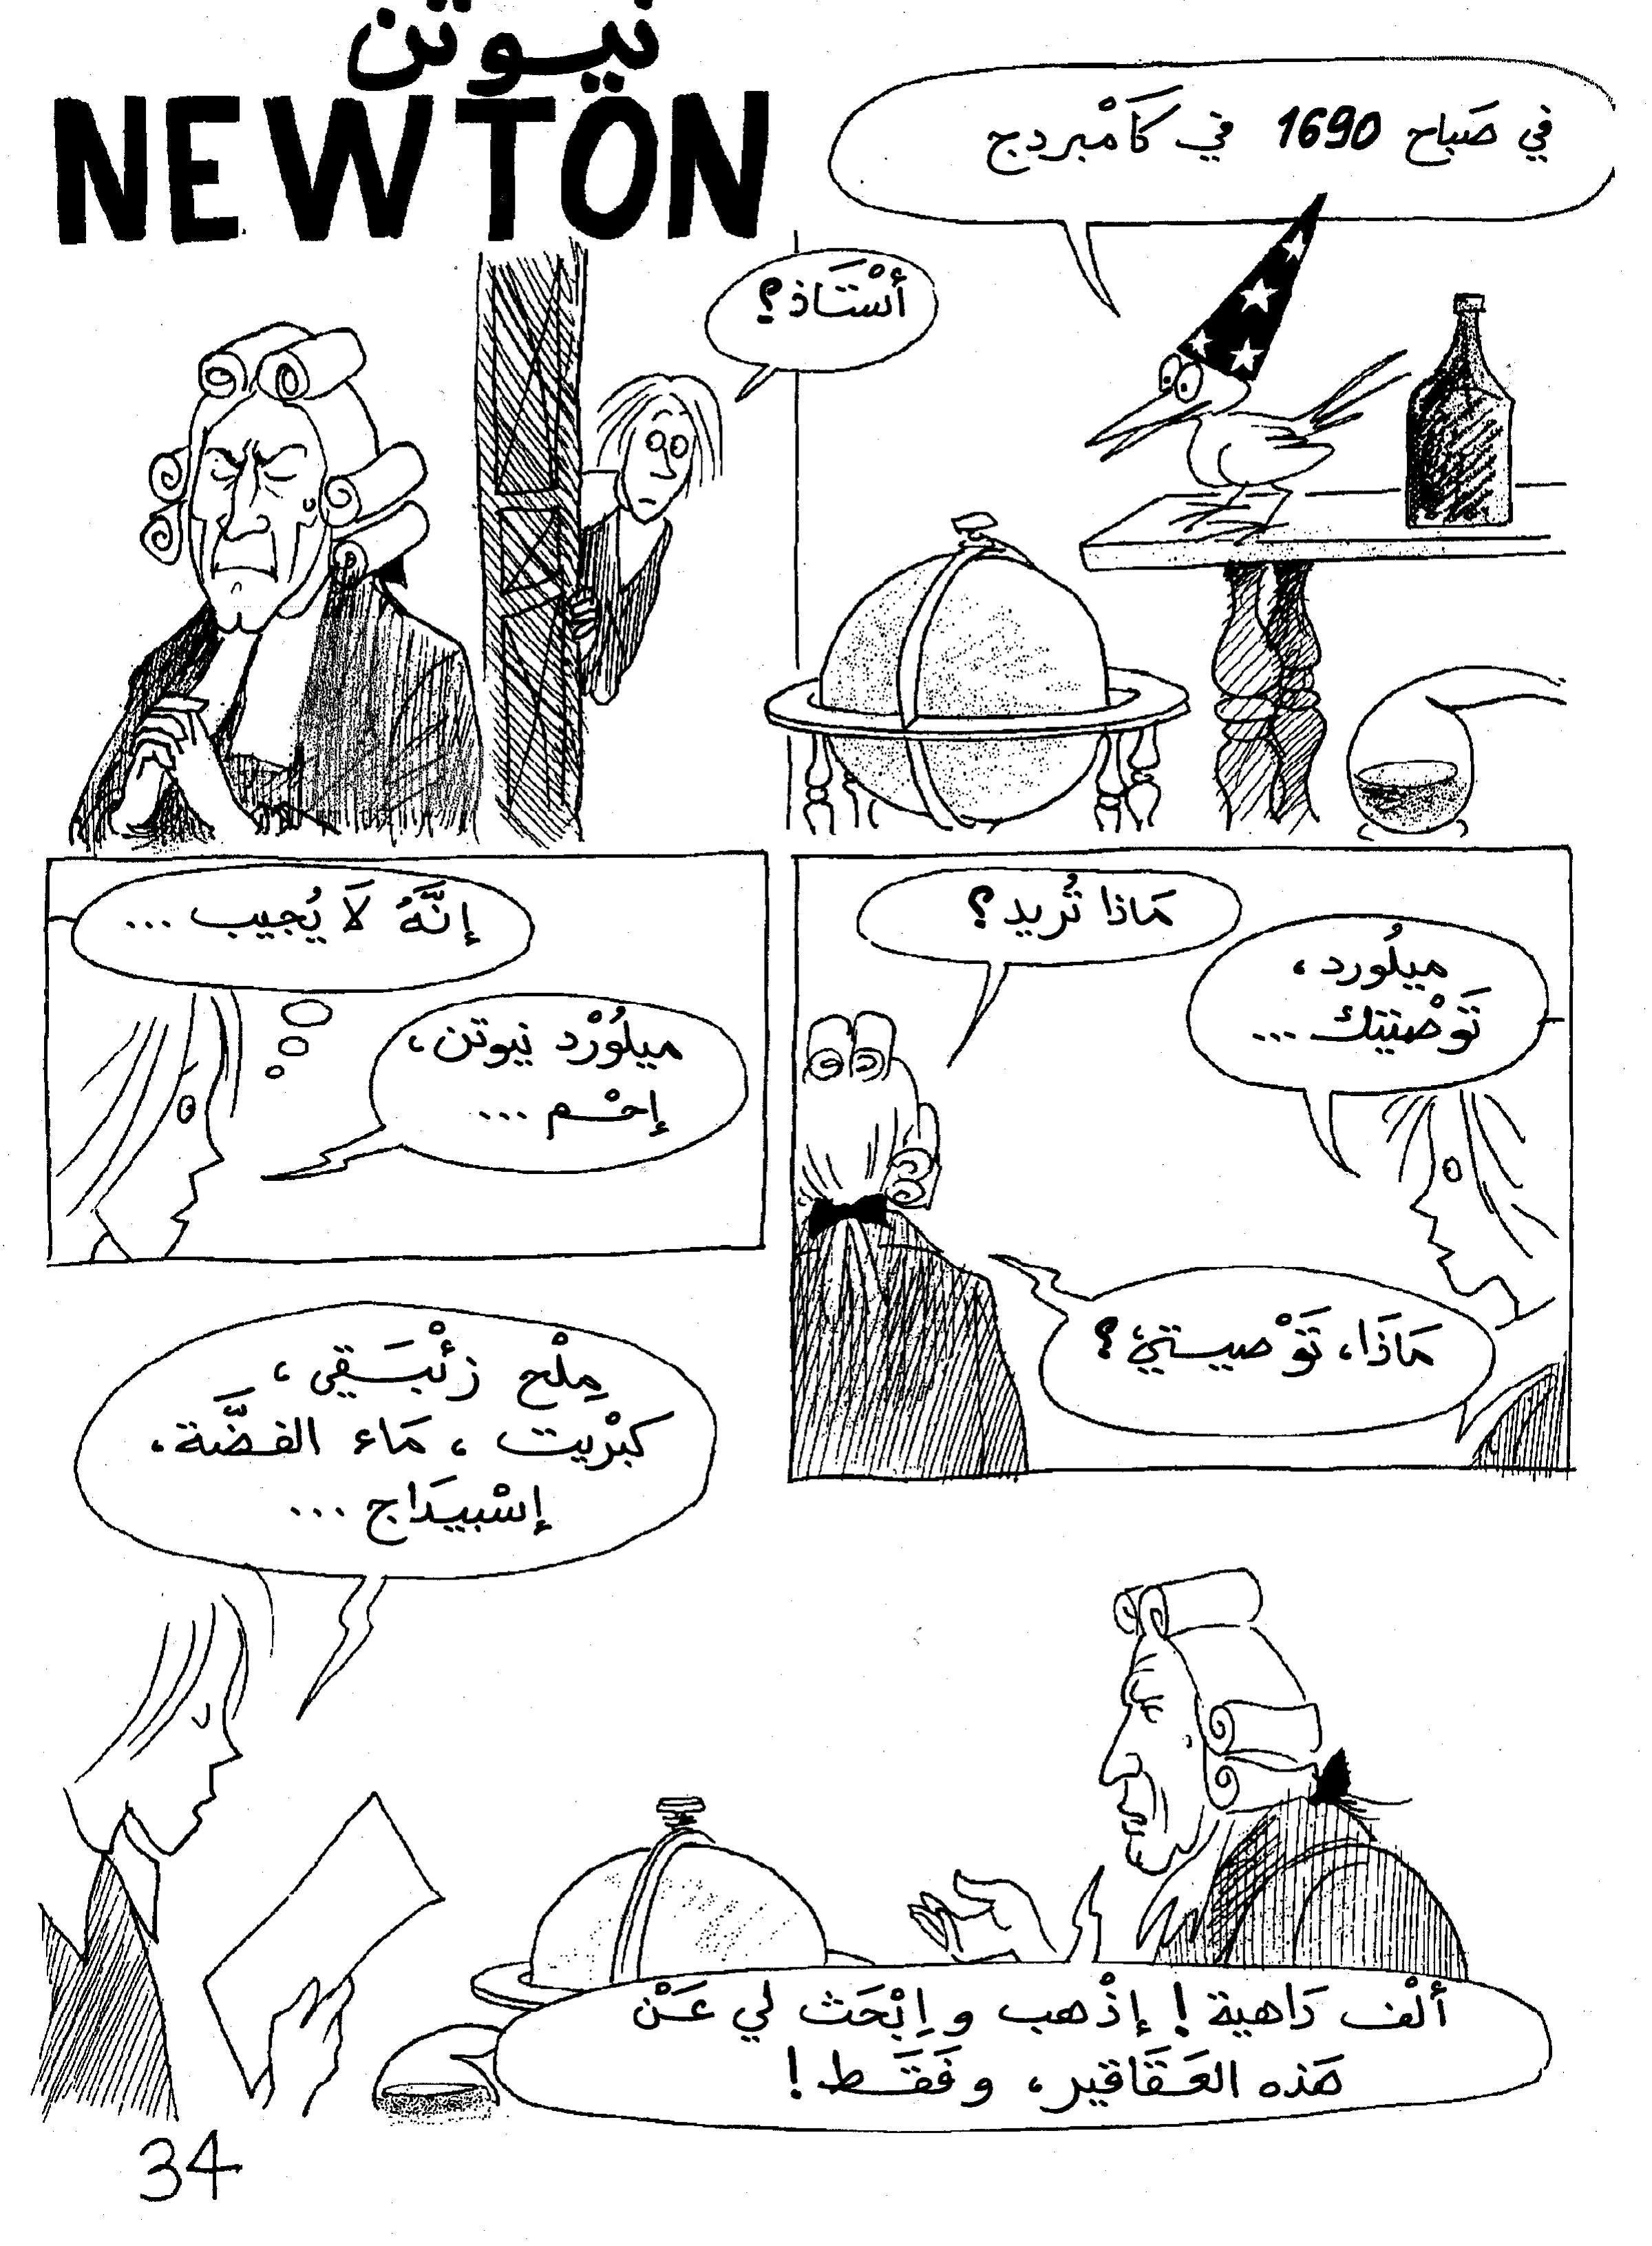 نيوتن
NEWTON
في صَباح 1690 في كَامْبردج
أسْتَاذ؟
مَاذا تُريد؟
ميلُورد،
تَوْصيتك...
مَاذَا، تَوْصيـتيُ؟
إنَّهُ لَا يُجيب...
ميلُوْرْد نيوتن،
إحْـم...
مِلْح زئْبَـقي،
كبْريت، مَاء الفـضَّة،
إسْبيدَاج...
ألْف دَاهية! إذْهب و اِبْحَث لي عَـنْ
هَذه العَـقَاقير، و فَقَـط!
34